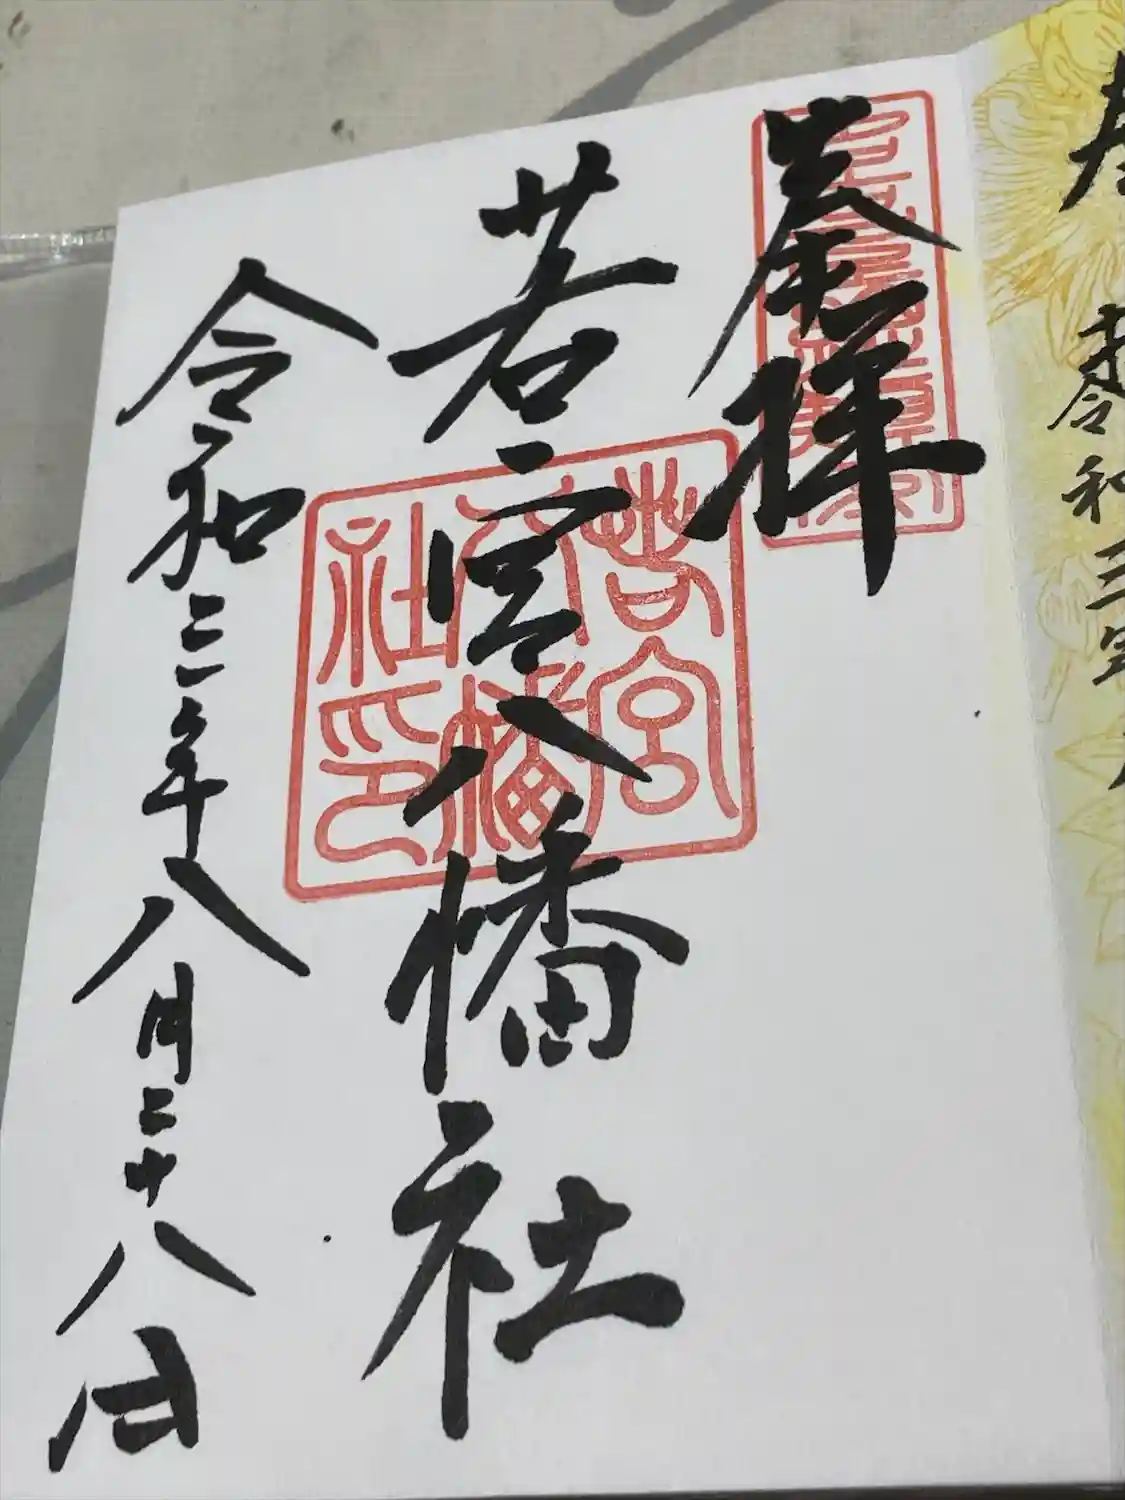 奉拝
若宮八幡社
令和三年八月二十八日
若宮八幡社印
令和三年